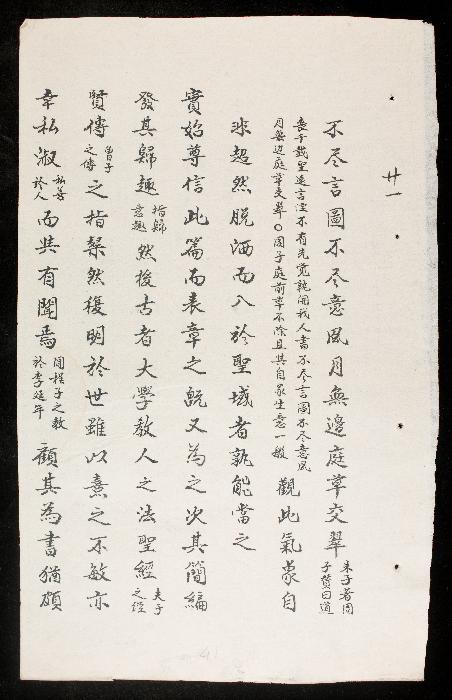 廿一
不尽言圖不尽意風月無邊庭草交翠朱子著周子贊曰道
喪千載聖遠言湮不有先覺孰開我人書不尽言圖不尽意風
月無边庭草交翠〇周子庭前草不除且其自家生意一般觀此氣象自
非超然脱洒而入於聖域者孰能當之
實始尊信此篇而表章之旣又為之次其簡編
發其歸趣指歸意趣然後古者大學教人之法聖經夫子之經
賢傳曾子之傳之指粲然復明於世雖以熹之不敏亦
幸私淑私善於人而共有聞焉聞程子之教於李延年顧其為書猶頗